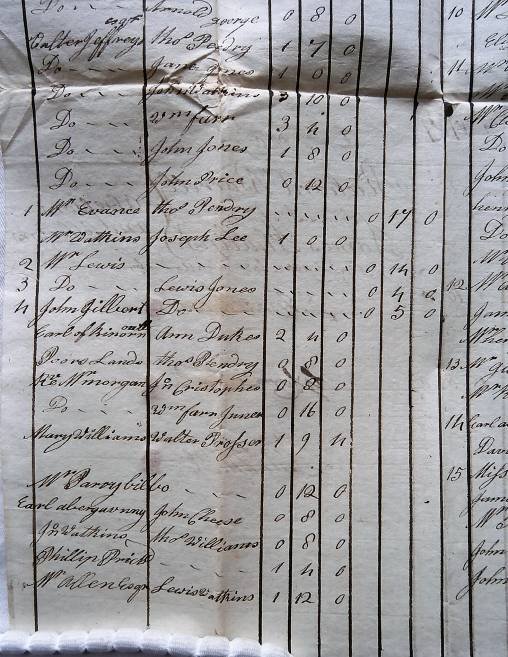 Arnold george 0 8 0
esqr
Walter Jeffreys thos Pendry 1 7 0
Do Jane Jones 1 0 0
Do John Watkins 3 10 0
Do Wm farr 3 4 0
Do John Jones 1 8 0
Do John Price 0 12 0
1 Mr Evance thos Pendry 0 17 0
Mr Watkins Joseph Lee 1 0 0
2 Mr Lewis 0 14 0
3 Do Lewis Jones 0 4 0
4 John Gilbert Do 0 5 0
Earl of Ann Dukes 2 4 0
Poors Lands thos Pendry 2 8 0
Mr morgan Jn Cristopher 0 8 0
Do Wm farr Juner 0 16 0
Mary Williams Walter Prosser 1 9 4
Mr 0 12 0
Earl abergavnny John Cheese 0 8 0
Jn Watkins thos Williams 0 8 0
Phillip Prichd 1 4 0
Mr Allen Esqr Lewis Watkins 1 12 0
10
11
12
13
14 Earl
15 Miss
Do
John
Do
John
John